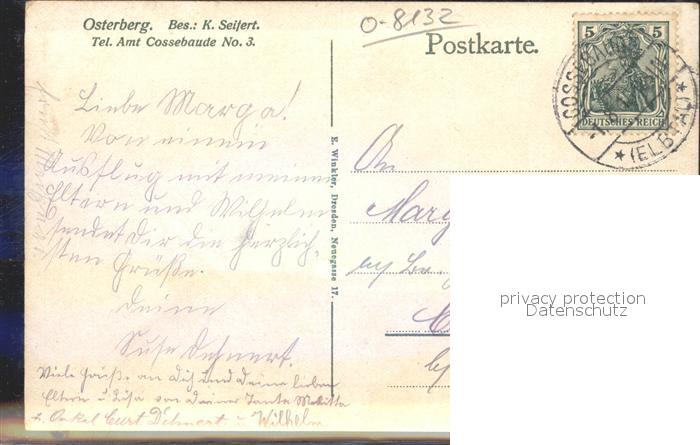 Osterberg. Bes.: K. Seifert.
Tel. Amt Cossebaude No. 3.
O-8132
Postkarte.
5 5
DEUTSCHES REICH
COSSEBAUDE
(ELBTAL)
Liebe Marga!
Von einem
Ausflug mit meinen
Eltern und Wilhelm
sendet Dir die herzlich-
sten Grüße.
Deine
Suse Dehnert.
Viele Grüße an Dich und Deine lieben
Eltern u. von Deiner Tante Melitta
u. Onkel Curt Dehnert u. Wilhelm
E. Winkler, Dresden, Neuegasse 17.
An
Marg
privacy protection
Datenschutz